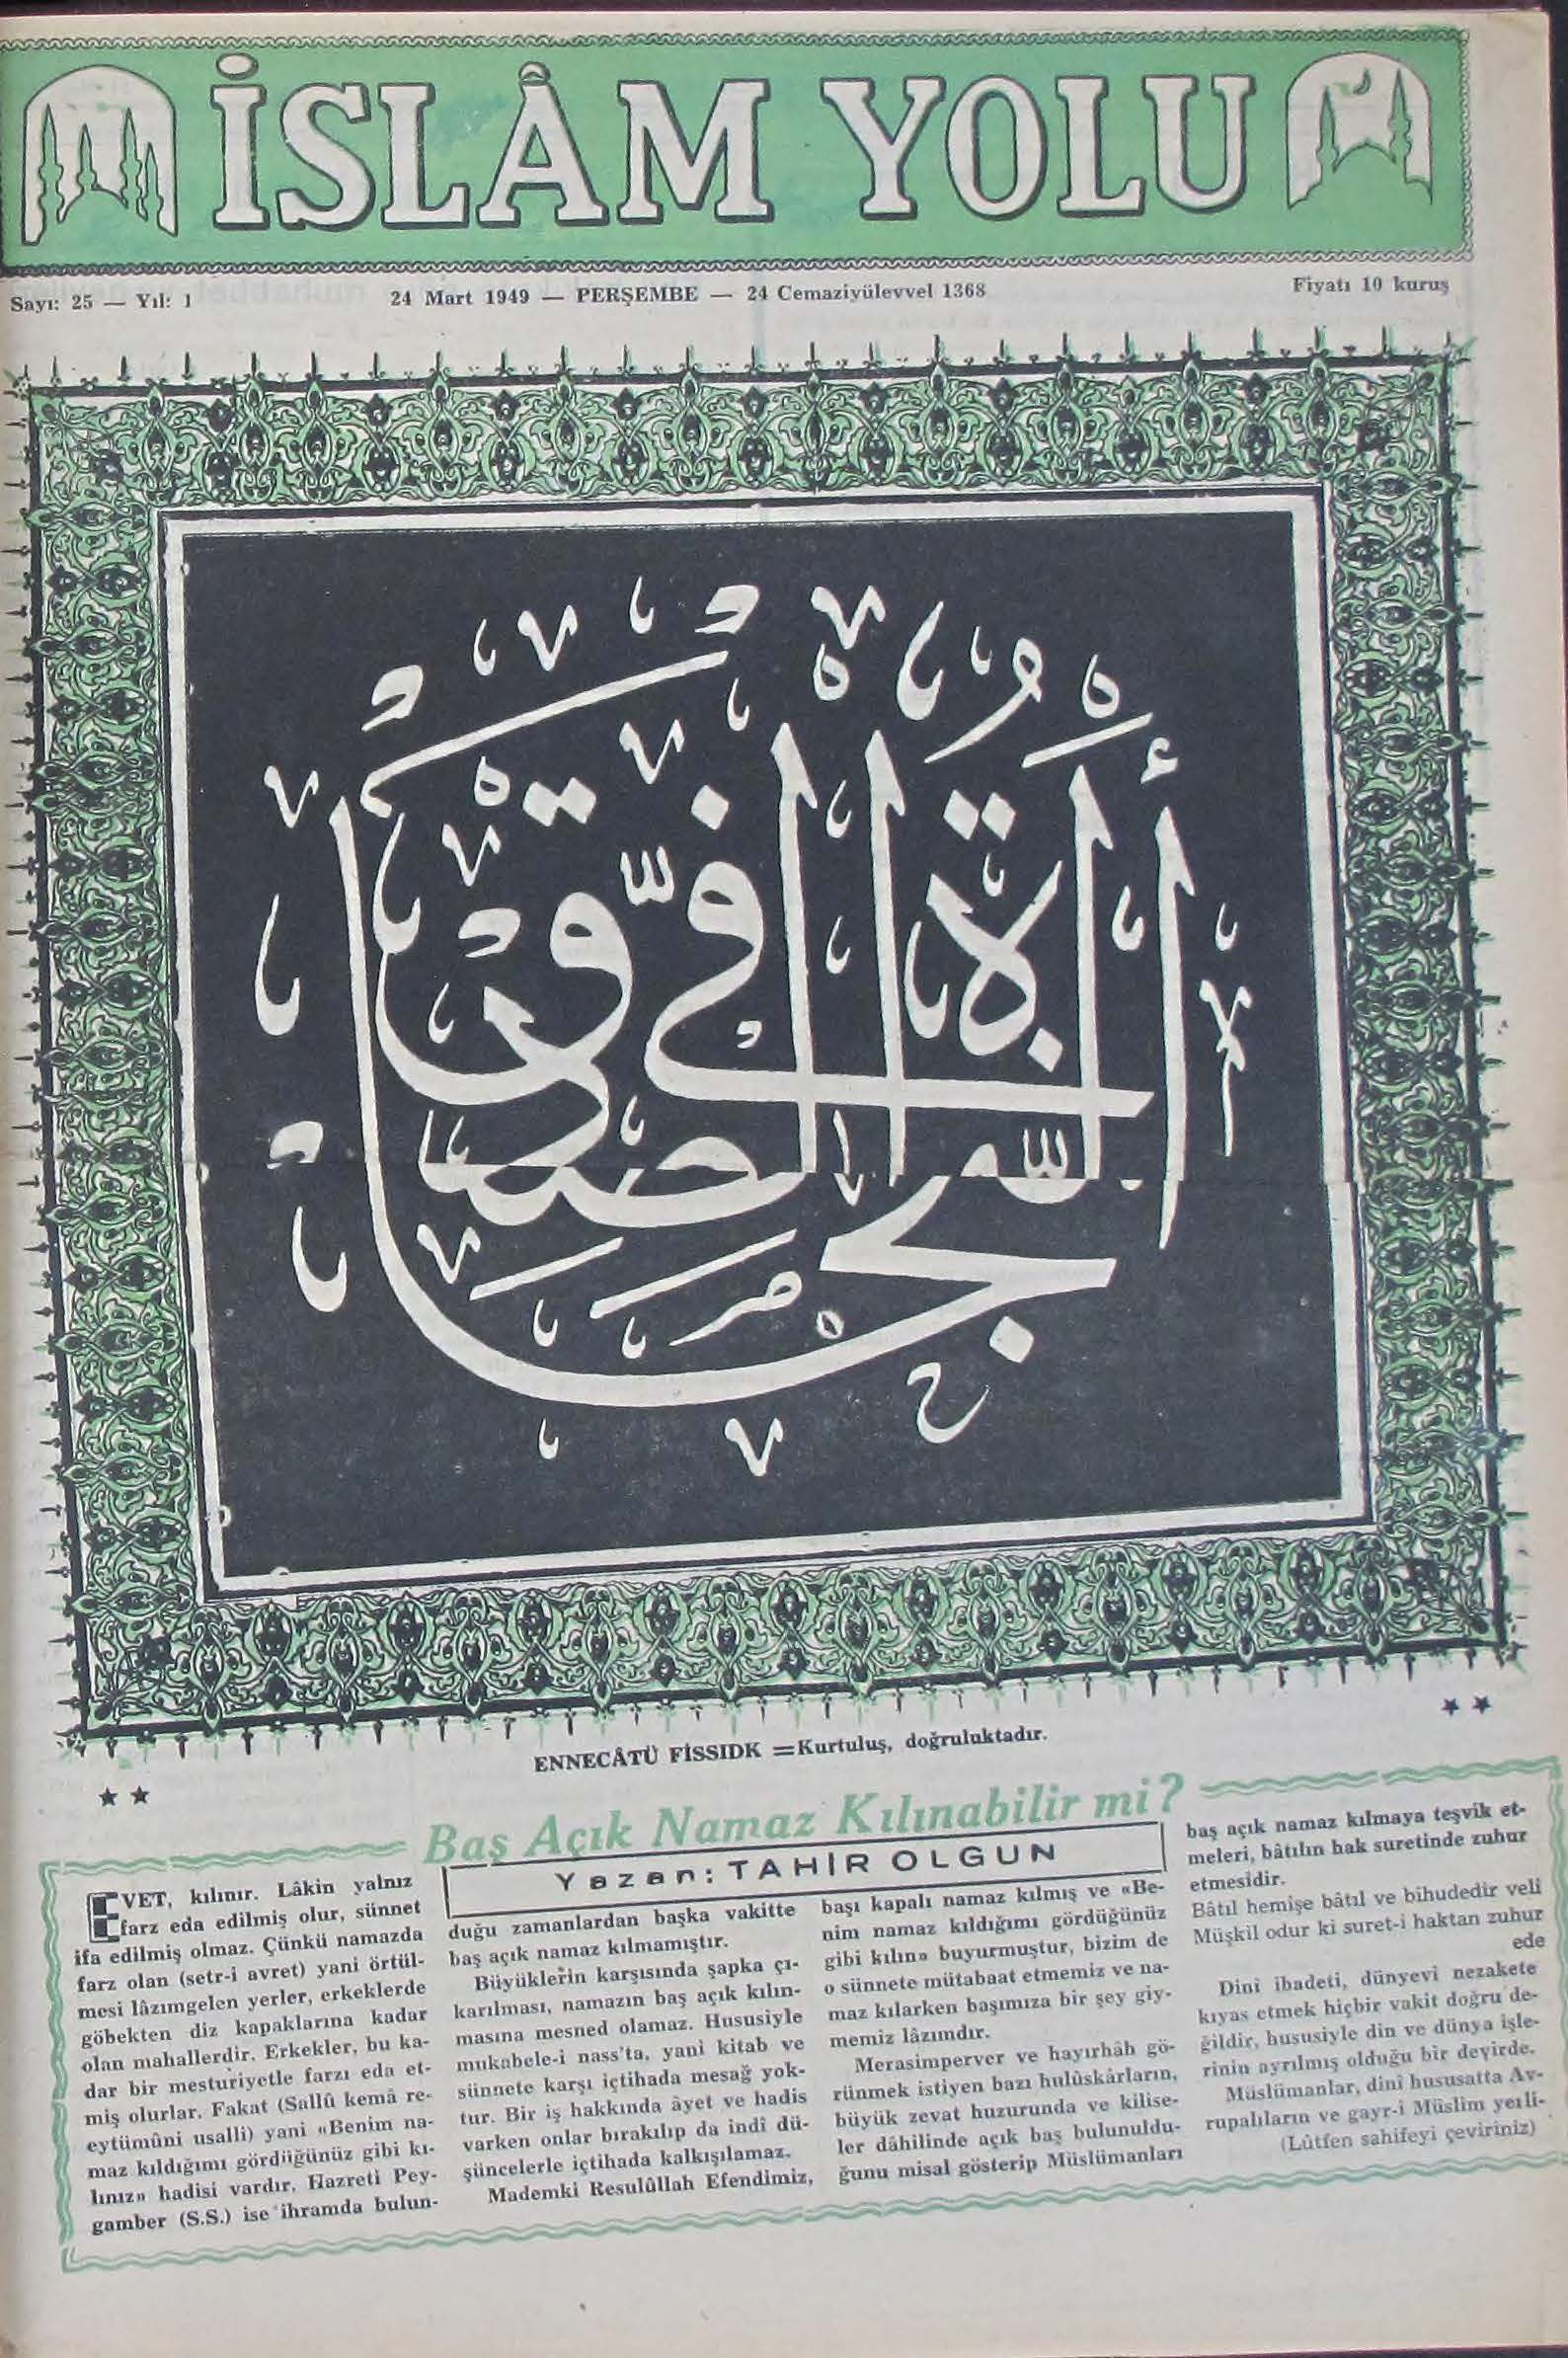 İSLÂM YOLU
Sayı: 25 — Yıl: 1
24 Mart 1949 — PERŞEMBE — 24 Cemaziyülevvel 1368
Fiyatı 10 kuruş
اَلنَّجَاةُ فِي الصِّدْقِ
ENNECÂTÜ FİSSIDK =Kurtuluş, doğruluktadır.
★ ★
★ ★
Baş Açık Namaz Kılınabilir mi?
Yazan: TAHİR OLGUN
EVET, kılınır. Lâkin yalnız
farz eda edilmiş olur, sünnet
ifa edilmiş olmaz. Çünkü namazda
farz olan (setr-i avret) yani örtül-
mesi lâzımgelen yerler, erkeklerde
göbekten diz kapaklarına kadar
olan mahallerdir. Erkekler, bu ka-
dar bir mesturiyetle farzı eda et-
miş olurlar. Fakat (Sallû kemâ re-
eytümûni usalli) yani «Benim na-
maz kıldığımı gördüğünüz gibi kı-
lınız» hadisi vardır. Hazreti Pey-
gamber (S.S.) ise ihramda bulun-
duğu zamanlardan başka vakitte
baş açık namaz kılmamıştır.
Büyüklerin karşısında şapka çı-
karılması, namazın baş açık kılın-
masına mesned olamaz. Hususiyle
mukabele-i nass'ta, yani kitab ve
sünnete karşı içtihada mesağ yok-
tur. Bir iş hakkında âyet ve hadis
varken onlar bırakılıp da indî dü-
şüncelerle içtihada kalkışılamaz.
Mademki Resulûllah Efendimiz,
başı kapalı namaz kılmış ve «Be-
nim namaz kıldığımı gördüğünüz
gibi kılın» buyurmuştur, bizim de
o sünnete mütabaat etmemiz ve na-
maz kılarken başımıza bir şey giy-
memiz lâzımdır.
Merasimperver ve hayırhâh gö-
rünmek istiyen bazı hulûskârların,
büyük zevat huzurunda ve kilise-
ler dâhilinde açık baş bulunuldu-
ğunu misal gösterip Müslümanları
baş açık namaz kılmaya teşvik et-
meleri, bâtılın hak suretinde zuhur
etmesidir.
Bâtıl hemişe bâtıl ve bihudedir velî
Müşkil odur ki suret-i haktan zuhur
ede
Dinî ibadeti, dünyevi nezakete
kıyas etmek hiçbir vakit doğru de-
ğildir, hususiyle din ve dünya işle-
rinin ayrılmış olduğu bir devirde.
Müslümanlar, dinî hususatta Av-
rupalıların ve gayr-i Müslim yerli-
(Lûtfen sahifeyi çeviriniz)